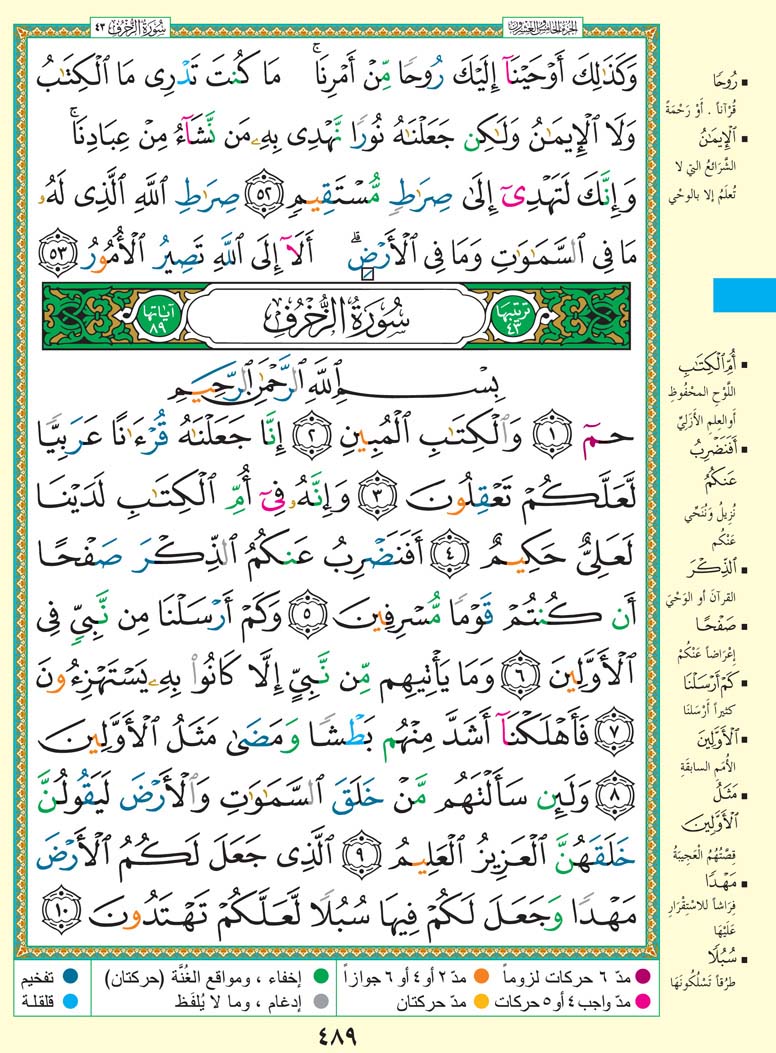 الجزء الخامس والعشرون
سُورَةُ الزُّخْرُفِ ٤٣
وَكَذَٰلِكَ أَوْحَيْنَآ إِلَيْكَ رُوحًا مِّنْ أَمْرِنَا ۚ مَا كُنتَ تَدْرِى مَا الْكِتَٰبُ
وَلَا الْإِيمَٰنُ وَلَٰكِن جَعَلْنَٰهُ نُورًا نَّهْدِى بِهِۦ مَن نَّشَآءُ مِنْ عِبَادِنَا ۚ
وَإِنَّكَ لَتَهْدِىٓ إِلَىٰ صِرَٰطٍ مُّسْتَقِيمٍ ٥٢ صِرَٰطِ اللَّهِ الَّذِى لَهُۥ
مَا فِى السَّمَٰوَٰتِ وَمَا فِى الْأَرْضِ ۗ أَلَآ إِلَى اللَّهِ تَصِيرُ الْأُمُورُ ٥٣
ترتيبها ٤٣
سُورَةُ الزُّخْرُفِ
آياتها ٨٩
بِسْمِ اللَّهِ الرَّحْمَٰنِ الرَّحِيمِ
حمٓ ١ وَالْكِتَٰبِ الْمُبِينِ ٢ إِنَّا جَعَلْنَٰهُ قُرْءَٰنًا عَرَبِيًّا
لَّعَلَّكُمْ تَعْقِلُونَ ٣ وَإِنَّهُۥ فِىٓ أُمِّ الْكِتَٰبِ لَدَيْنَا
لَعَلِىٌّ حَكِيمٌ ٤ أَفَنَضْرِبُ عَنكُمُ الذِّكْرَ صَفْحًا
أَن كُنتُمْ قَوْمًا مُّسْرِفِينَ ٥ وَكَمْ أَرْسَلْنَا مِن نَّبِىٍّ فِى
الْأَوَّلِينَ ٦ وَمَا يَأْتِيهِم مِّن نَّبِىٍّ إِلَّا كَانُوا۟ بِهِۦ يَسْتَهْزِءُونَ
٧ فَأَهْلَكْنَآ أَشَدَّ مِنْهُم بَطْشًا وَمَضَىٰ مَثَلُ الْأَوَّلِينَ
٨ وَلَئِن سَأَلْتَهُم مَّنْ خَلَقَ السَّمَٰوَٰتِ وَالْأَرْضَ لَيَقُولُنَّ
خَلَقَهُنَّ الْعَزِيزُ الْعَلِيمُ ٩ الَّذِى جَعَلَ لَكُمُ الْأَرْضَ
مَهْدًا وَجَعَلَ لَكُمْ فِيهَا سُبُلًا لَّعَلَّكُمْ تَهْتَدُونَ ١٠
رُوحًا
قُرْآناً . أَوْ رَحْمَةً
الْإِيمَٰنُ
الشَّرَائِعُ التي لا
تُعلَمُ إلا بالوَحْيِ
أُمِّ الْكِتَٰبِ
اللَّوْحِ المحْفُوظِ
أو العِلمِ الأَزَلِيِّ
أَفَنَضْرِبُ
عَنكُمُ
نُزِيلُ ونُنَحِّي
عَنْكُم
الذِّكْرَ
القرآنَ أو الوَحْيَ
صَفْحًا
إِعْرَاضاً عَنْكُمْ
كَمْ أَرْسَلْنَا
كثيراً أَرْسَلنَا
الْأَوَّلِينَ
الأُمَمِ السابقَةِ
مَثَلُ
الْأَوَّلِينَ
قِصَّتُهُمُ العَجِيبَةُ
مَهْدًا
فِرَاشاً للاسْتِقْرَارِ
عَلَيْهَا
سُبُلًا
طُرُقاً تَسْلُكُونَهَا
مدّ ٦ حركات لزوماً
مدّ ٢ أو ٤ أو ٦ جوازاً
إخفاء ، ومواقع الغُنَّة (حركتان)
تفخيم
مدّ واجب ٤ أو ٥ حركات
مدّ حركتان
إدغام ، وما لا يُلفَظ
قلقلة
٤٨٩